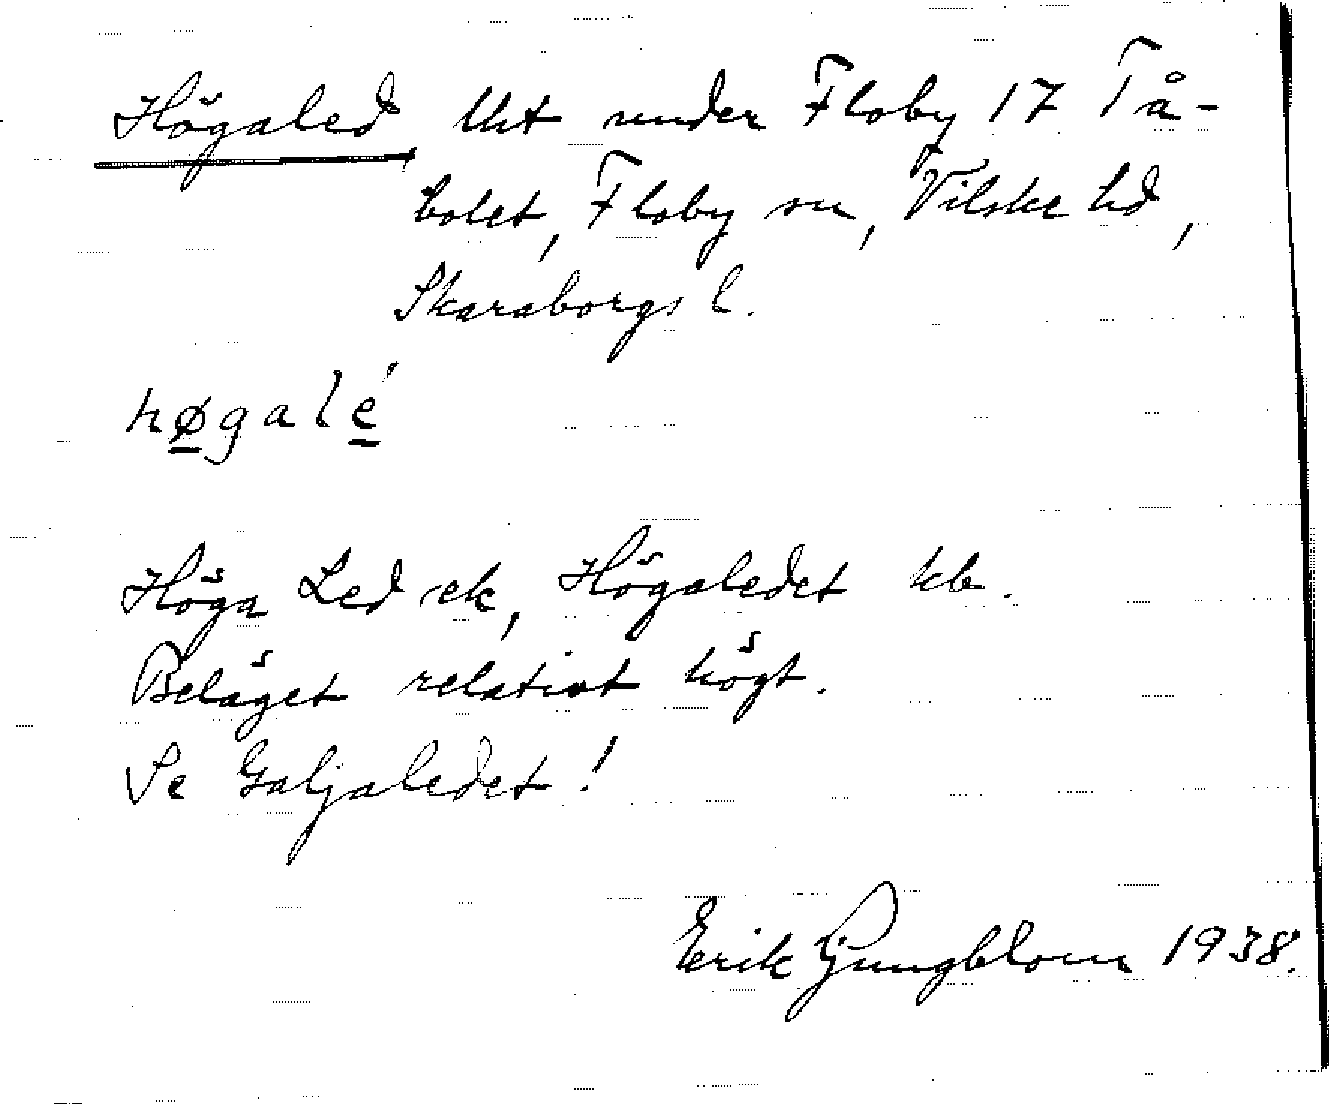 Högaled Utt under Floby 17 Tå-
bolet, Floby sn, Vilske hd,
Skaraborgs l.
høgalé
Höga Led ek, Högaledet kb.
Beläget relativt högt.
Se Galjaledet!
Erik Ljungblom 1938.